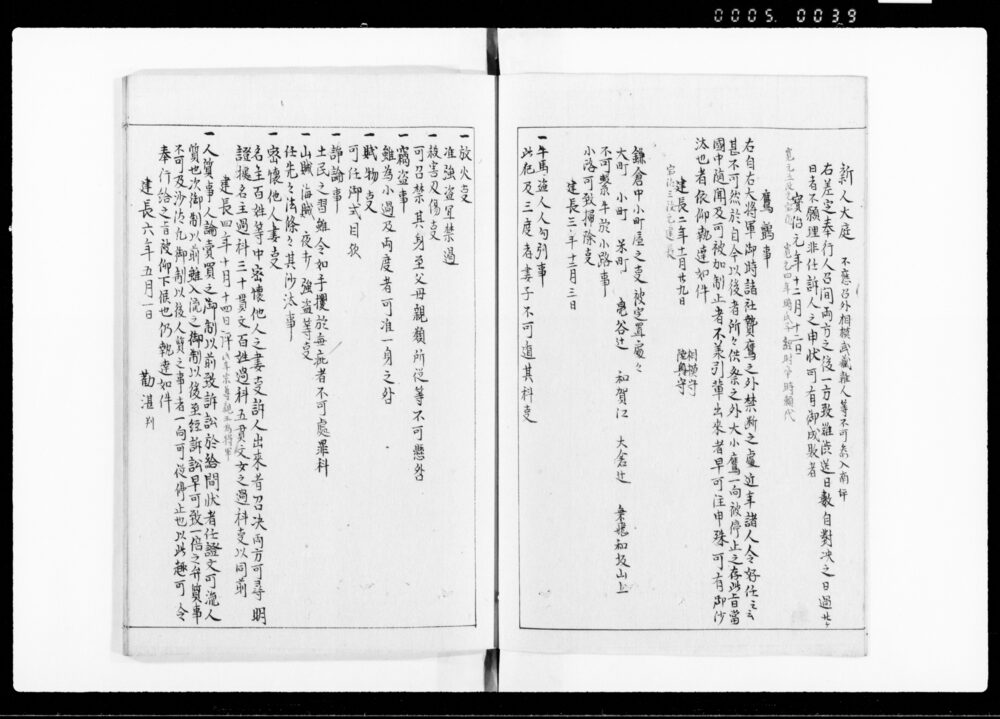 0005. 0039
新人大庭 不應召外相模武藏雜人等不可參入南坪
右差定奉行人召問兩方之後一方致難澁送日數自對決之日過廿ケ
日者不顧理非任訴人之申狀可有御成敗者
寶治元年十二月十二日
鷹鷂事
右自右大將軍御時諸社贄鷹之外禁斷之處近年諸人令好仕之云々
甚不可然於自今以後者所々供祭之外大小鷹一向被停止之存此旨當
國中隨聞及可被加制止者不承引輩出來者早可注申殊可有御沙
汰也者依仰執達如件
建長二年十一月廿九日 相模守
陸奧守
鎌倉中小町屋之事被定置處々
大町 小町 米町 龜谷辻 和賀江 大倉辻 氣飛和坂山上
不可繫牛於小路事
小路可致掃除事
建長三年十二月三日
一牛馬盜人人勾引事
此犯及三度者妻子不可遁其科事
一放火事
准強盜宜禁遏
一殺害及傷事
可召禁其身至父母親類所從等不可懸咎
一竊盜事
雖為小過及兩度者可准一身之咎
一賊物事
可任御式目歟
一諍論事
土民之習雖令如手攫於每疵者不可處罪科
一山賊海賊夜討強盜等事
任先々法條々其沙汰事
一密懷他人妻事
名主百姓等中密懷他人之妻事訴人出來者召決兩方可尋明
證據名主過科三十貫文百姓過科五貫文女之過科事以同前
建長四年十月十四日
一人質事人論賣買之御制以前致訴訟於給問狀者任證文可流人
質也次御制以前雖入流之御制以後至經訴訟早可致一倍之弁質事
不可及沙汰也御制以後人質之事者一向可從停止也以此趣可令
奉行給之旨被仰下候也仍執達如件
建長六年五月一日 勸湛判